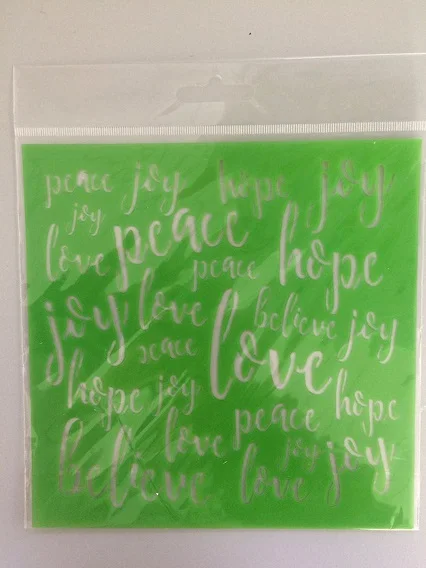 peace joy hope joy
joy peace
love peace hope
joy love believe joy
peace love
hope joy hope
love peace
believe love joy joy